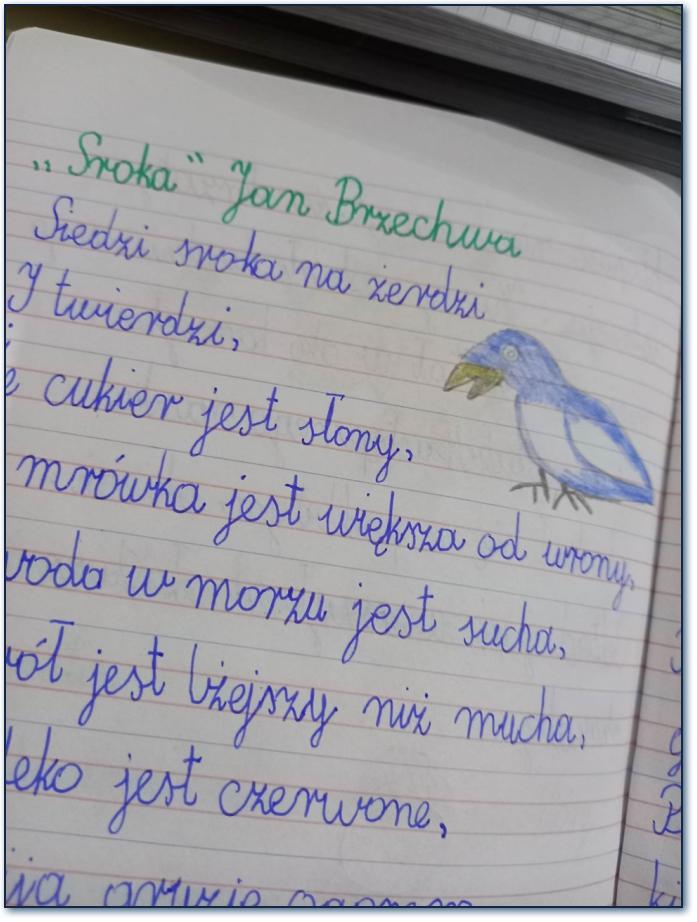 „Sroka" Jan Brzechwa
Siedzi sroka na żerdzi
I twierdzi,
cukier jest słony,
mrówka jest większa od wrony,
woda w morzu jest sucha,
jest lżejszy niż mucha,
jest czerwone,